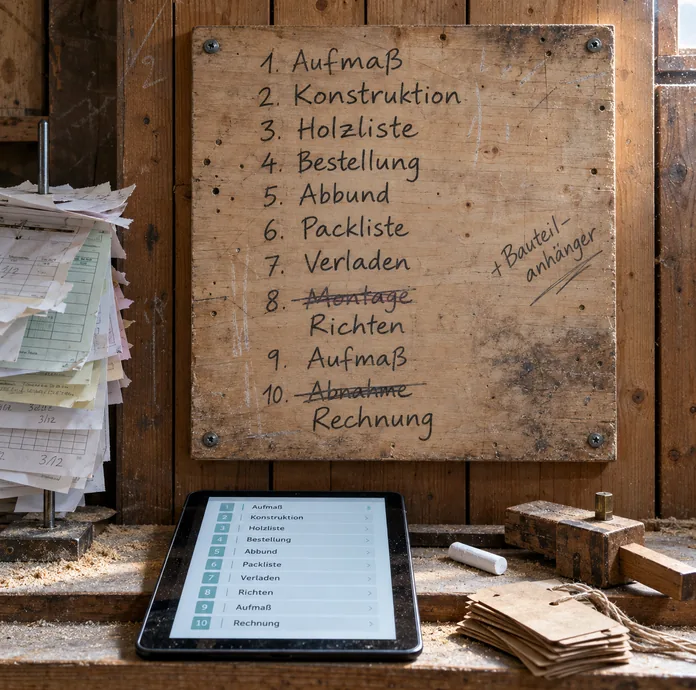 1. Aufmaß
2. Konstruktion
3. Holzliste
4. Bestellung
5. Abbund
6. Packliste
7. Verladen
8. Montage
Richten
9. Aufmaß
10. Abnahme
Rechnung
+ Bauteil-
anhänger
1 Aufmaß
2 Konstruktion
3 Holzliste
4 Bestellung
5 Abbund
6 Packliste
7 Verladen
8 Richten
9 Aufmaß
10 Rechnung
3/12
3/12
2